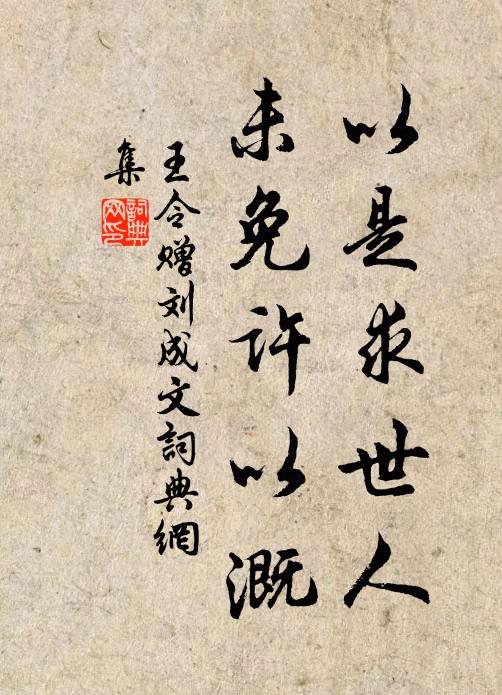 以是求世人
未免许以溉
王令赠刘成文詞典網
集
詞典
网印